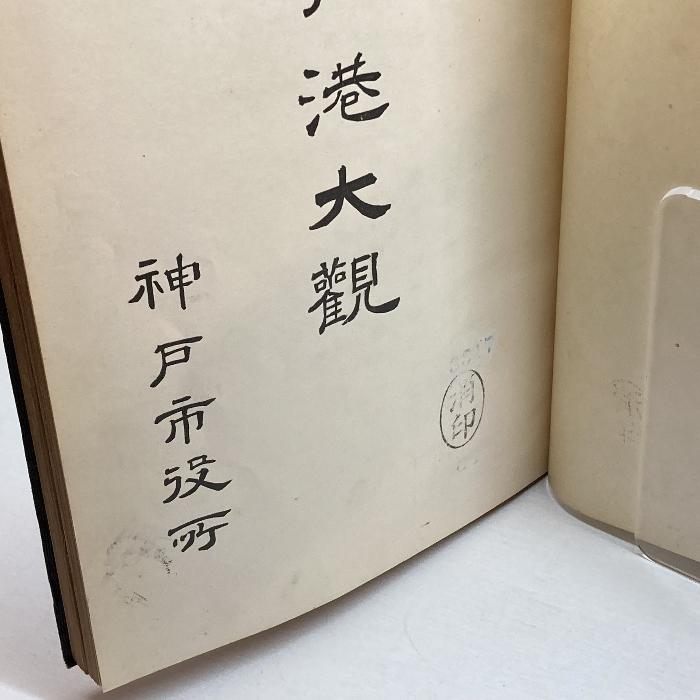 港大觀
神戸市役所
消印